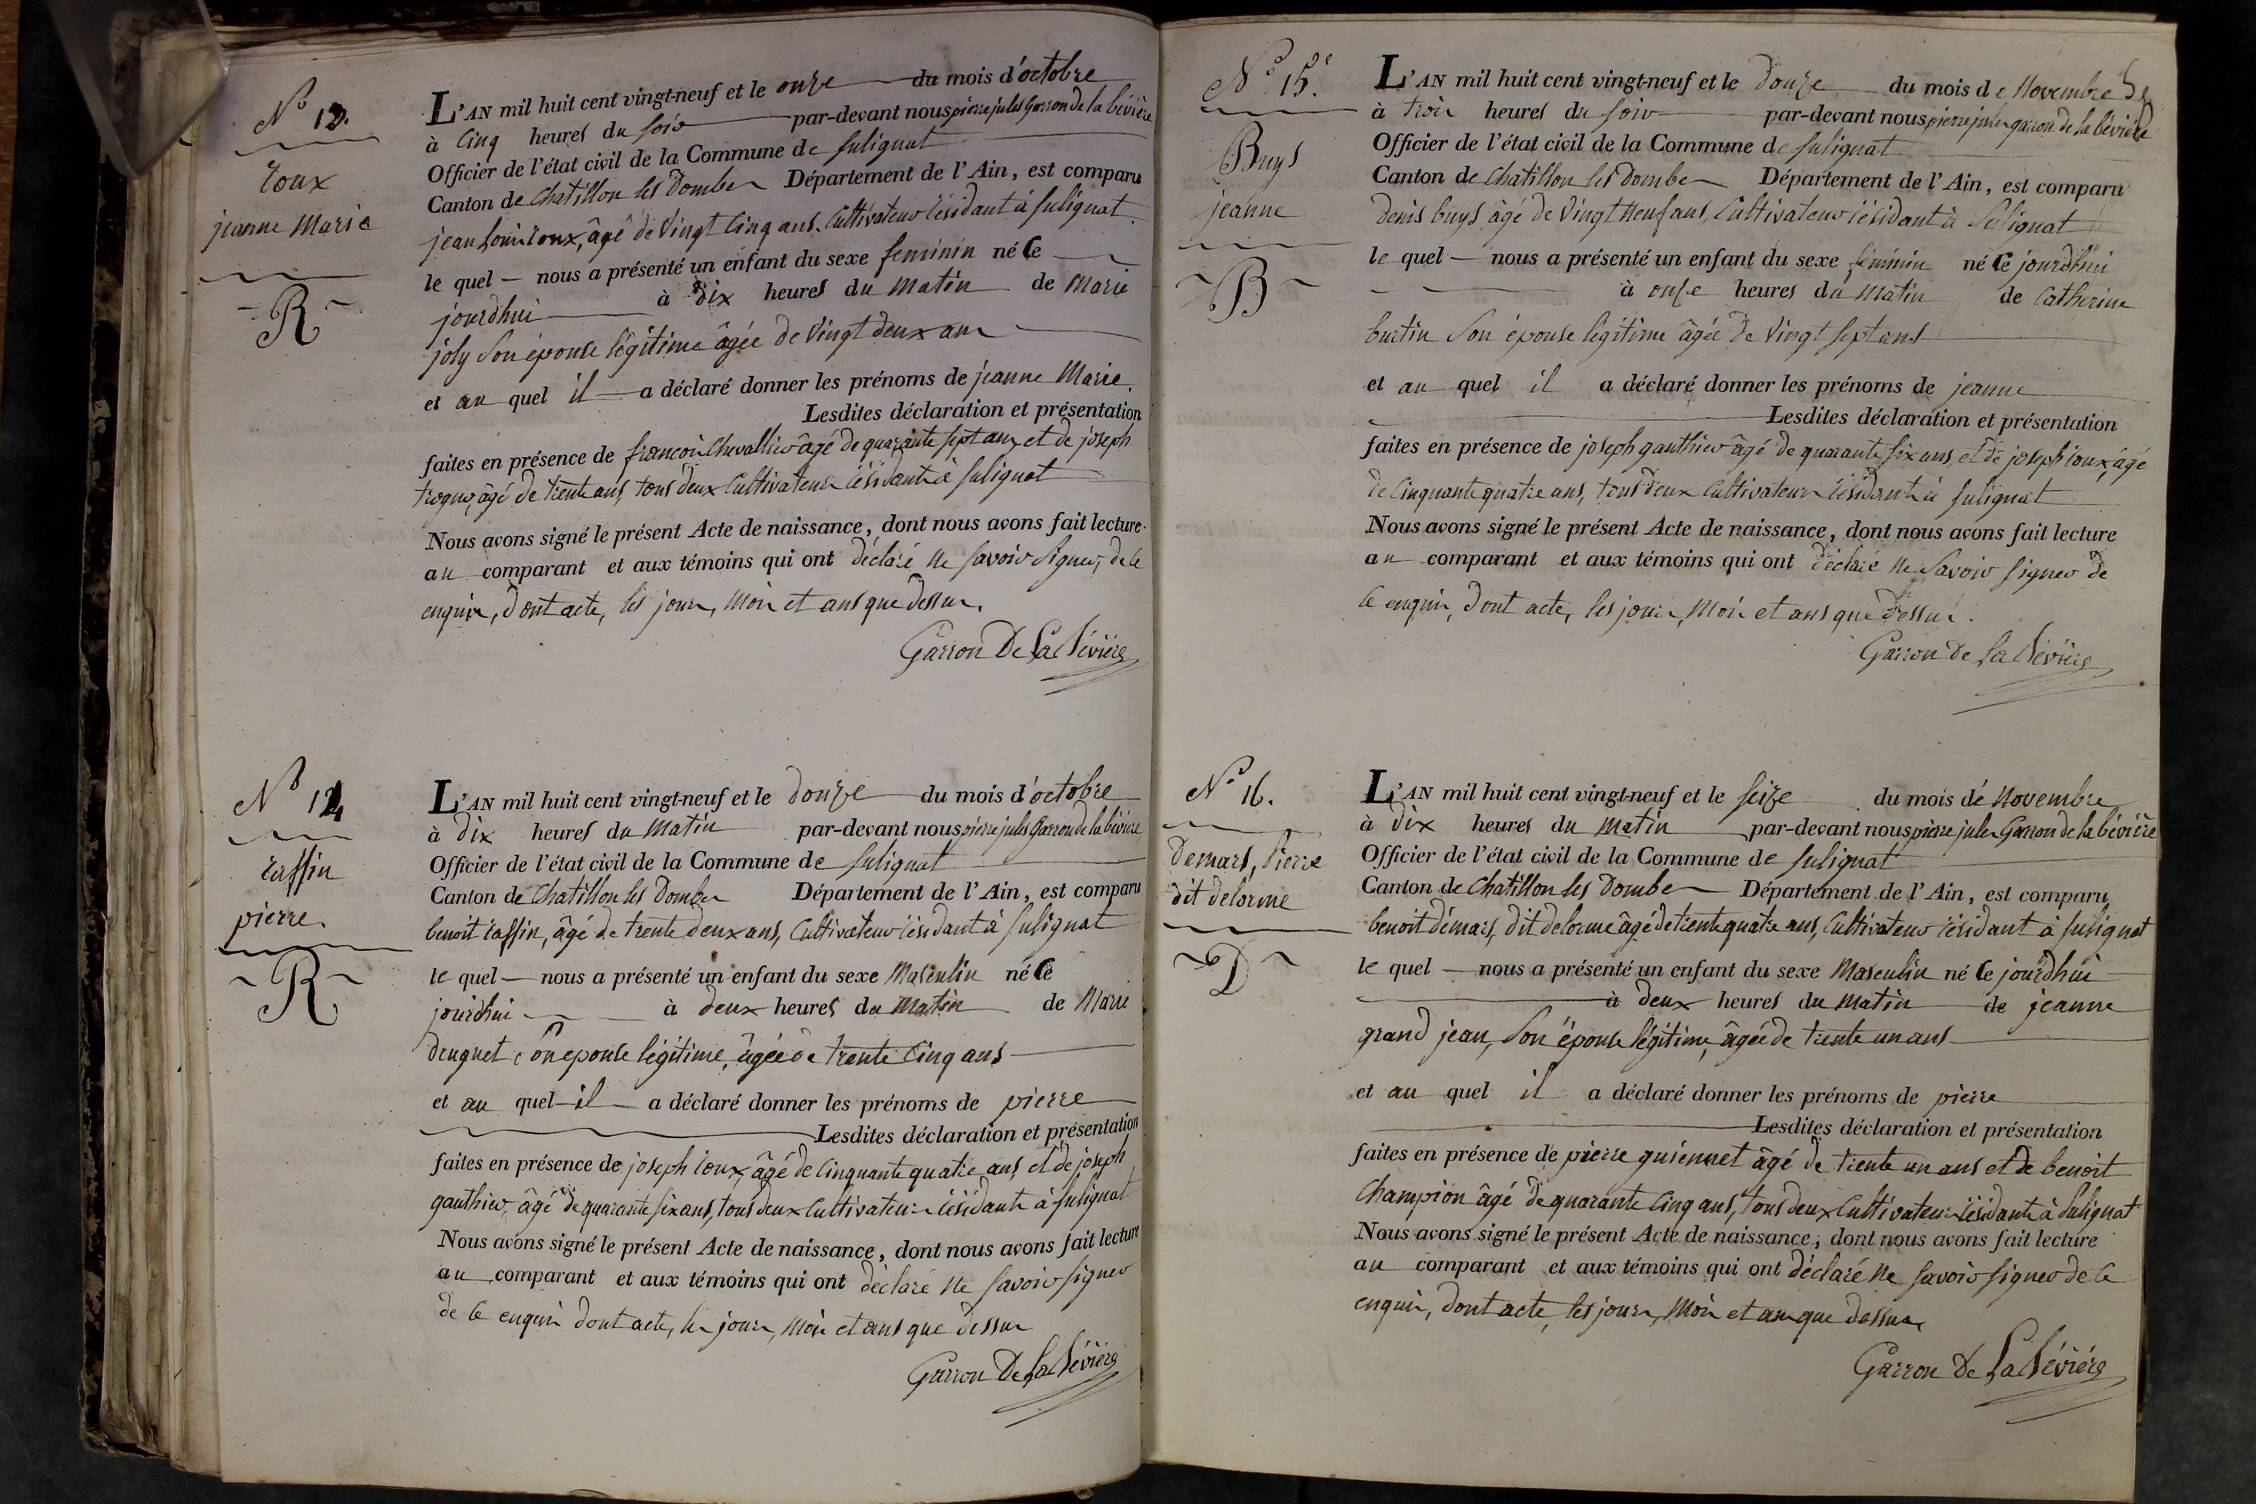 N.o 13.
roux
jeanne Marie
R
L'AN mil huit cent vingt-neuf et le onze du mois d'octobre
à cinq heures du soir par-devant nous pierre jules Garron de la bévière
Officier de l'état civil de la Commune de sulignat
Canton de Chatillon les Dombes Département de l'Ain, est comparu
jean Louis roux, âgé de vingt cinq ans, Cultivateur résidant à sulignat
le quel nous a présenté un enfant du sexe feminin né ce
jourdhui à dix heures du matin de Marie
joly son épouse légitime âgée de vingt deux ans
et au quel il a déclaré donner les prénoms de jeanne Marie.
Lesdites déclaration et présentation
faites en présence de françois Chevallier âgé de quarante sept ans, et de joseph
âgé de trente ans, tous deux Cultivateurs résidants à sulignat
Nous avons signé le présent Acte de naissance, dont nous avons fait lecture
au comparant et aux témoins qui ont déclaré ne savoir signer, de ce
enquis, dont acte, les jour, mois et ans que dessus.
Garron De La Bévière
N.o 14
raffin
pierre.
R
L'AN mil huit cent vingt-neuf et le douze du mois d'octobre
à dix heures du matin par-devant nous pierre jules Garron de la bévière
Officier de l'état civil de la Commune de sulignat
Canton de Chatillon les Dombes Département de l'Ain, est comparu
benoit raffin, âgé de trente deux ans, Cultivateur résidant à sulignat
le quel nous a présenté un enfant du sexe Masculin né ce
jourdhui à deux heures du matin de Marie
son epouse légitime, âgée de trente cinq ans
et au quel il a déclaré donner les prénoms de pierre
Lesdites déclaration et présentation
faites en présence de joseph roux, âgé de cinquante quatre ans, et de joseph
gauthier, âgé de quarante six ans, tous deux Cultivateurs résidants à sulignat
Nous avons signé le présent Acte de naissance, dont nous avons fait lecture
au comparant et aux témoins qui ont déclaré ne savoir signer
de ce enquis dont acte, les jour, mois et ans que dessus
Garron De La Bévière
N.o 15.
Buys
jeanne
B
L'AN mil huit cent vingt-neuf et le douze du mois de Novembre
à trois heures du soir par-devant nous pierre jules garron de la bévière
Officier de l'état civil de la Commune de sulignat
Canton de Chatillon les Dombes Département de l'Ain, est comparu
denis buys âgé de vingt neuf ans, Cultivateur résidant à Sulignat
le quel nous a présenté un enfant du sexe féminin né ce jourdhui
à onze heures du matin de Catherine
burtin son épouse légitime âgée de vingt sept ans
et au quel il a déclaré donner les prénoms de jeanne
Lesdites déclaration et présentation
faites en présence de joseph gauthier âgé de quarante six ans, et de joseph roux, âgé
de cinquante quatre ans, tous deux Cultivateurs résidants à sulignat
Nous avons signé le présent Acte de naissance, dont nous avons fait lecture
au comparant et aux témoins qui ont déclaré ne savoir signer de
ce enquis, dont acte, les jour, mois et ans que dessus.
Garron De La Bévière
N.o 16.
Demars, Pierre
dit delorme
D
L'AN mil huit cent vingt-neuf et le seize du mois de Novembre
à dix heures du matin par-devant nous pierre jules Garron de la bévière
Officier de l'état civil de la Commune de sulignat
Canton de Chatillon les Dombes Département de l'Ain, est comparu
benoit démars, dit delorme âgé de trente quatre ans, Cultivateur résidant à sulignat
le quel nous a présenté un enfant du sexe Masculin né ce jourdhui
à deux heures du matin de jeanne
grand jean, son épouse légitime, âgée de trente un ans
et au quel il a déclaré donner les prénoms de pierre
Lesdites déclaration et présentation
faites en présence de pierre guiennet âgé de trente un ans et de benoit
Champion âgé de quarante cinq ans, tous deux Cultivateurs résidants à Sulignat
Nous avons signé le présent Acte de naissance, dont nous avons fait lecture
au comparant et aux témoins qui ont déclaré ne savoir signer de ce
enquis, dont acte, les jour, mois et an que dessus,
Garron De La Bévière